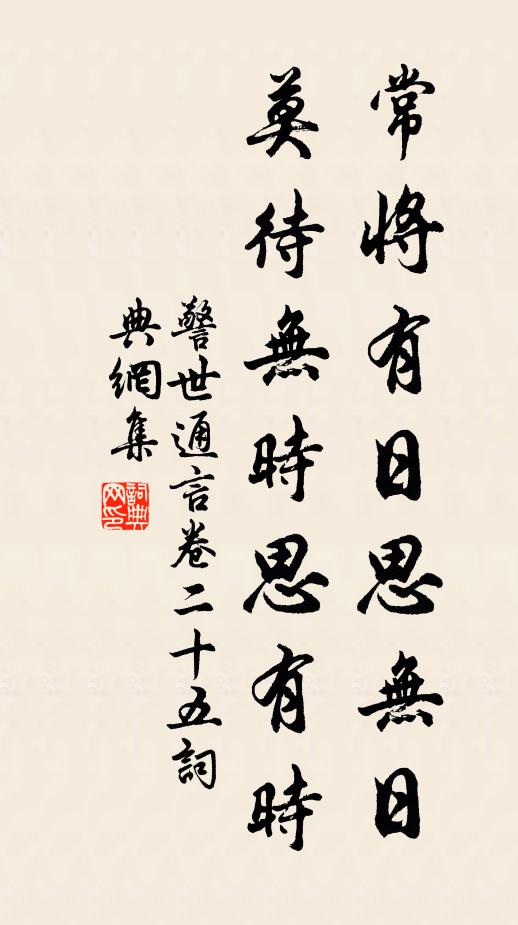 常將有日思無日
莫待無時思有時
警世通言卷二十五詞
典網集
詞典
网印